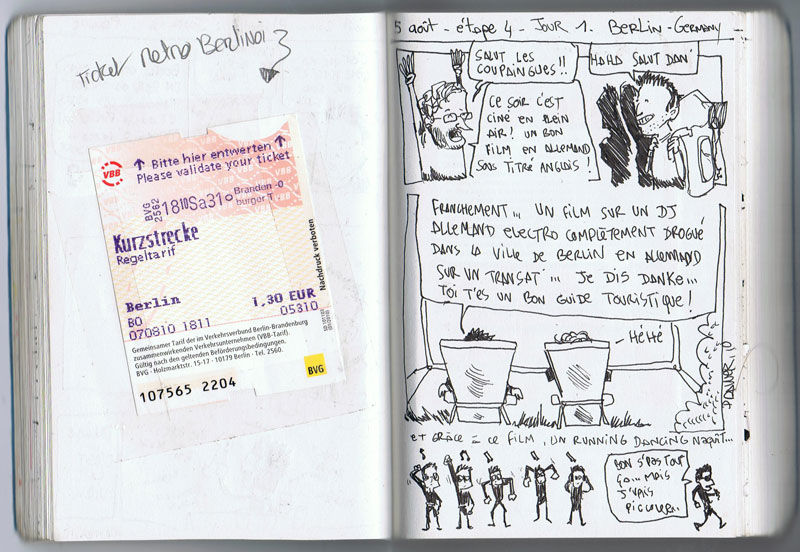 Ticket metro Berlinoi
VBB
↑ Bitte hier entwerten ↑
Please validate your ticket
BVG
2562
1810Sa31
Branden-0
burger T
Kurzstrecke
Regeltarif
Nachdruck verboten
Berlin 1,30 EUR
BO 05310
070810 1811
Gemeinsamer Tarif der im Verkehrsverbund Berlin-Brandenburg
zusammenwirkenden Verkehrsunternehmen (VBB-Tarif).
Gültig nach den geltenden Beförderungsbedingungen.
BVG · Holzmarktstr. 15-17 · 10179 Berlin · Tel. 2560.
BVG
107565 2204
5 août - étape 4 - Jour 1. Berlin - Germany
SALUT LES
COUPAINGUES!!
HAHA SALUT DAN'
CE SOIR C'EST
CINÉ EN PLEIN
AIR! UN BON
FILM EN ALLEMAND
SOUS TITRÉ ANGLAIS!
FRANCHEMENT... UN FILM SUR UN DJ
ALLEMAND ELECTRO COMPLÈTEMENT DROGUÉ
DANS LA VILLE DE BERLIN EN ALLEMAND
SUR UN TRANSAT'... JE DIS DANKE...
TOI T'ES UN BON GUIDE TOURISTIQUE!
HÉHÉ
ET GRÂCE à CE FILM, UN RUNNING DANCING NAQUÎT...
BON S'PAS TOUT
ÇA... MAIS
J'VAIS